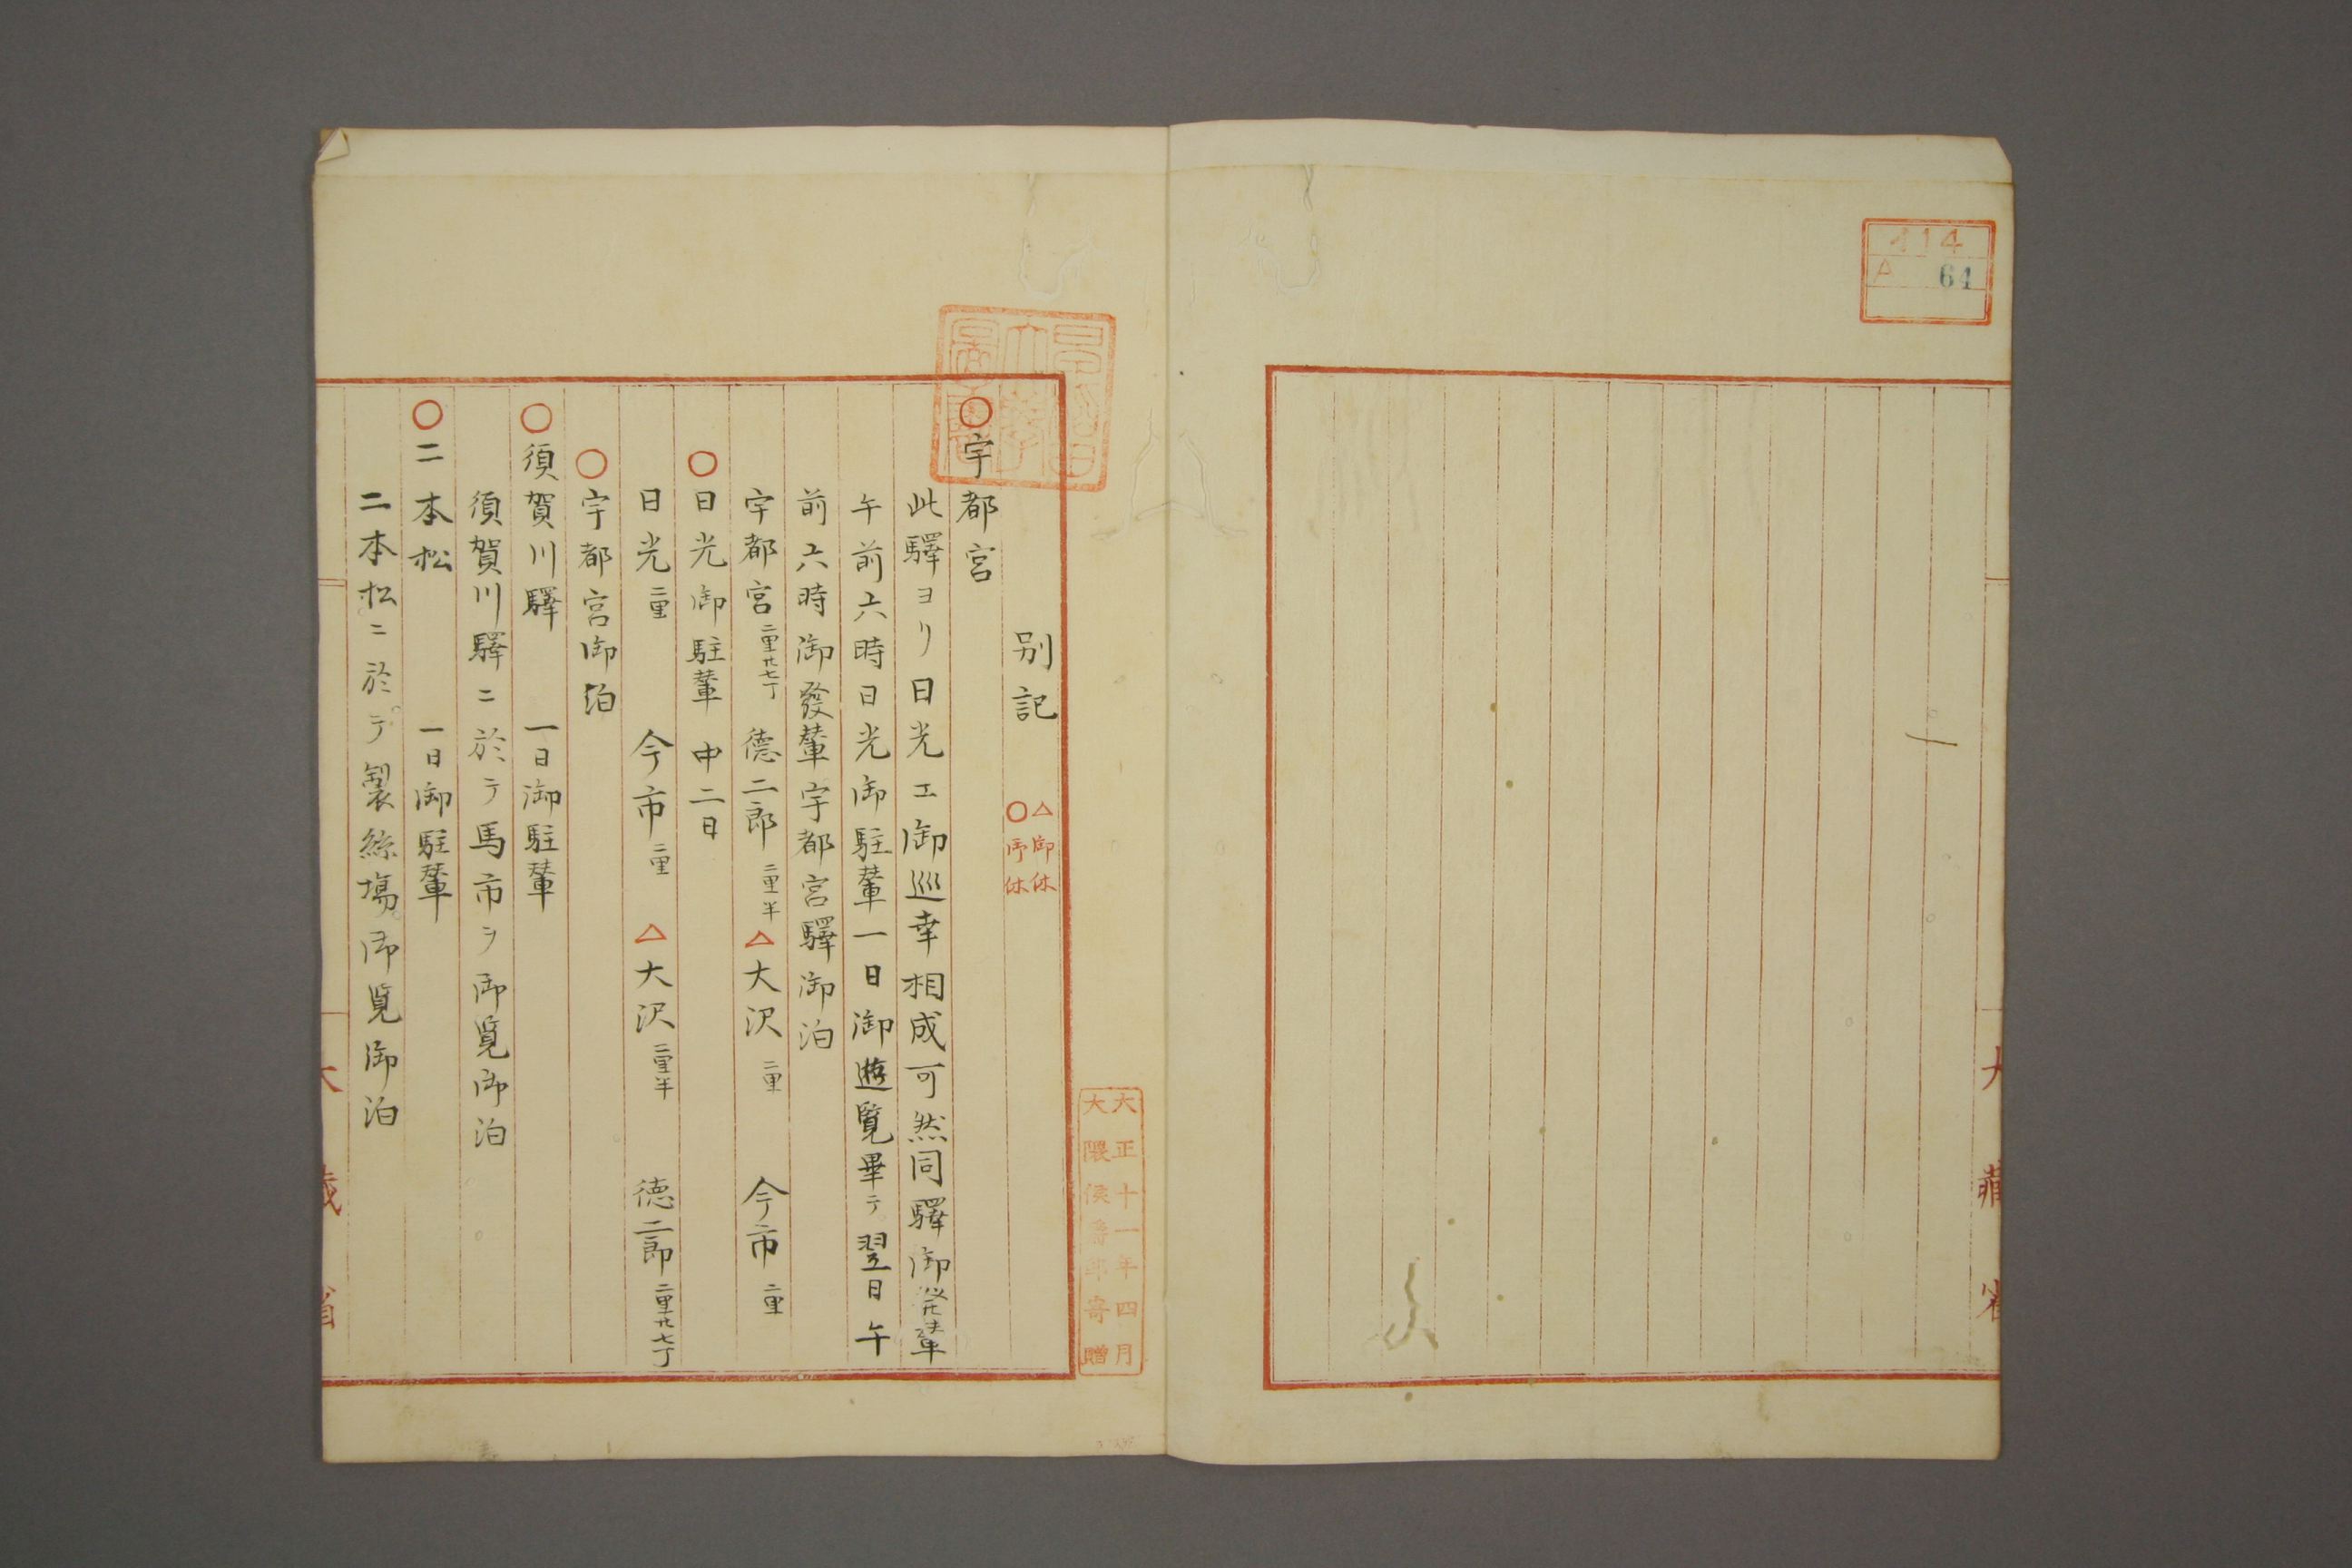 414
A 64
大藏省
大正十一年四月
大隈侯爵邸寄贈
別記
△御休
○御休
○宇都宮
此驛ヨリ日光エ御巡幸相成可然同驛御発輦
午前六時日光御駐輦一日御遊覧畢テ翌日午
前六時御發輦宇都宮驛御泊
宇都宮 二里廿七丁 德二郎 二里半 △大沢 二里 今市 二里
○日光御駐輦 中二日
日光 二里 今市 二里 △大沢 二里半 徳二郎 二里廿七丁
○宇都宮御泊
○須賀川驛 一日御駐輦
須賀川驛ニ於テ馬市ヲ御覧御泊
○二本松 一日御駐輦
二本松ニ於テ製絲場御覧御泊
大藏省